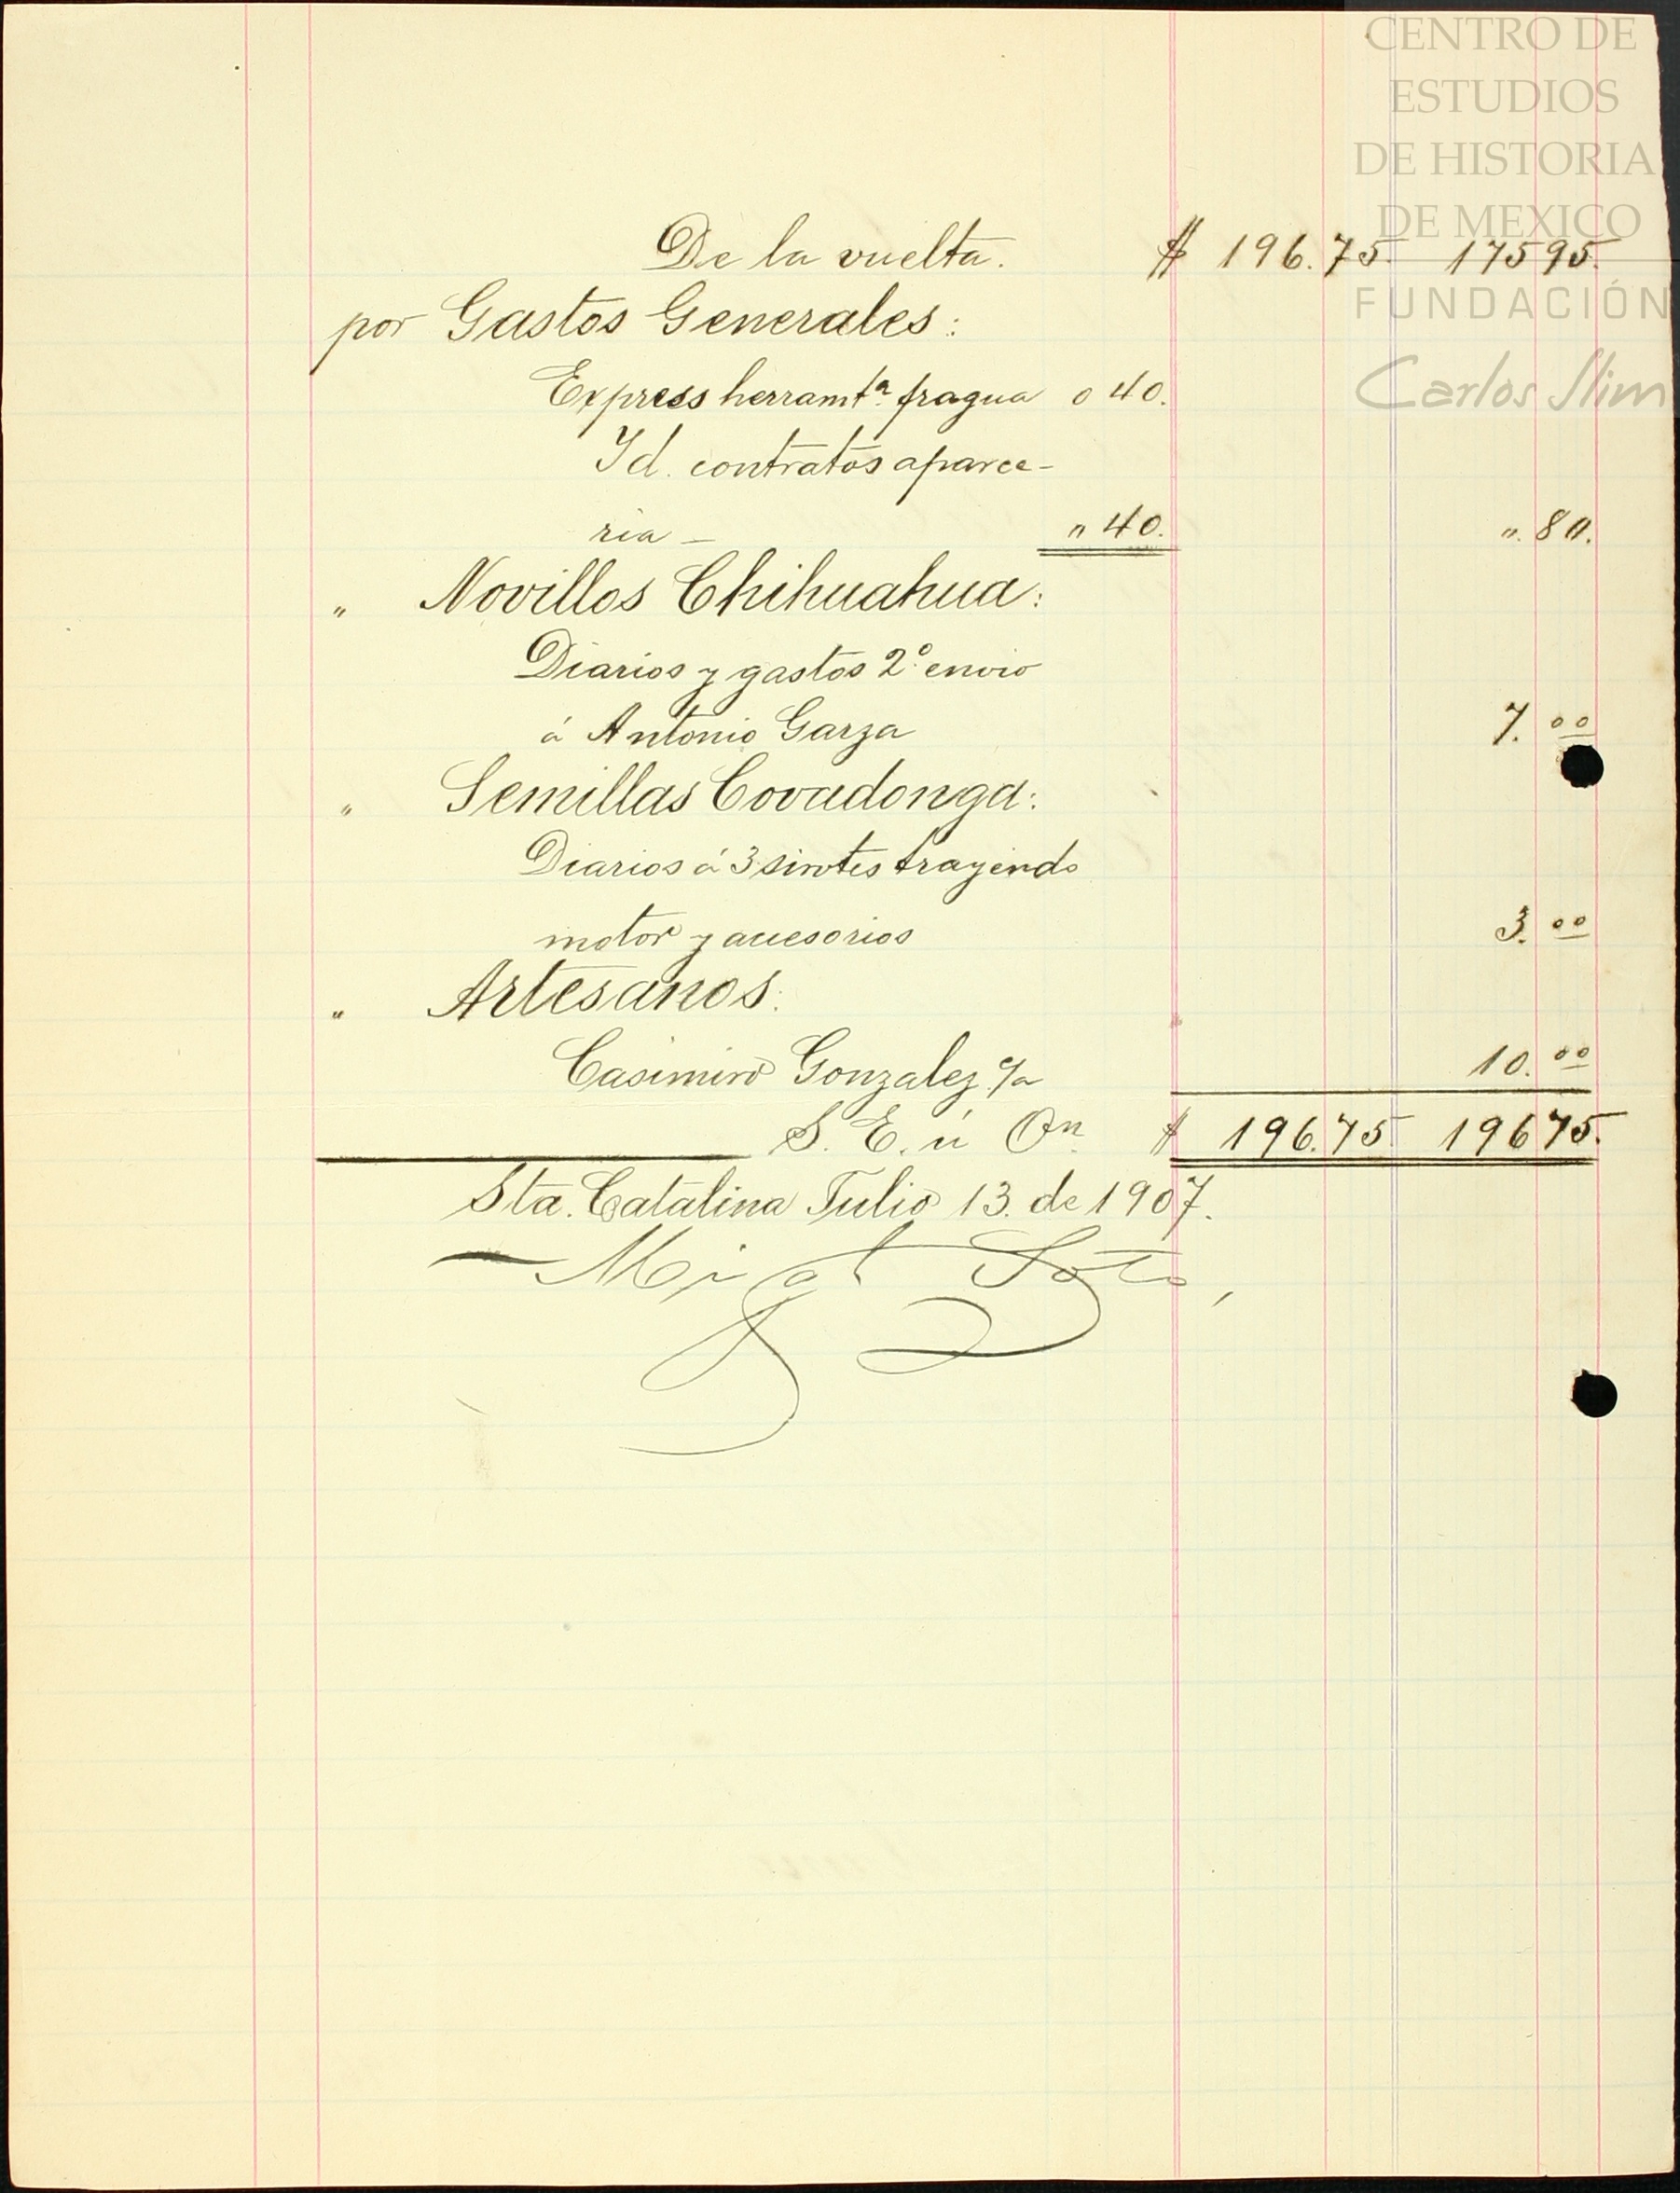 CENTRO DE
ESTUDIOS
DE HISTORIA
DE MEXICO
FUNDACIÓN
Carlos Slim
De la vuelta. $ 196.75 175 95.
por Gastos Generales:
Express herramtª. fragua 0 40.
Id. contratos aparce-
ria - " 40. ". 80.
" Novillos Chihuahua:
Diarios y gastos 2º envio
á Antonio Garza 7.00
" Semillas Covadonga:
Diarios á 3 sirvtes trayendo
motor y accesorios 3.00
" Artesanos:
Casimiro Gonzalez c/a 10.00
S. E. ú On. $ 196.75 196 75.
Sta. Catalina Julio 13. de 1907.
Migl Soto,